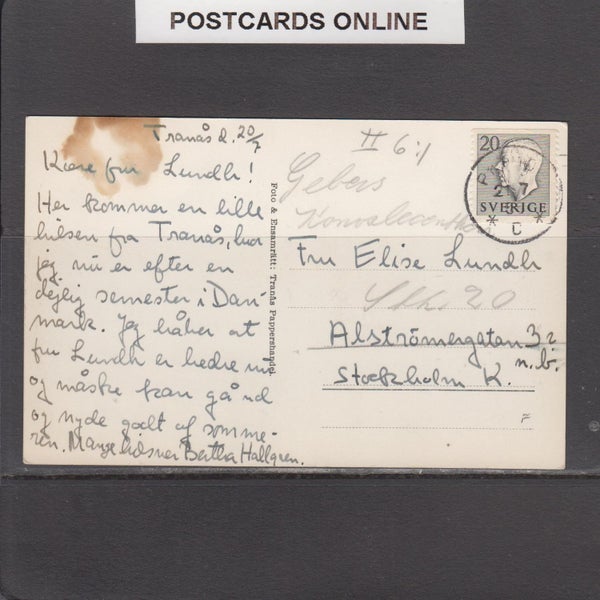 POSTCARDS ONLINE
Tranås d. 20/7
Kære fru Lundh!
Her kommer en lille
hilsen fra Tranås, hvor
jeg nu er efter en
dejlig semester i Dan-
mark. Jeg håber at
fru Lundh er bedre nu
og måske kan gå ud
og nyde godt af somme-
ren. Mange hilsner Bertha Hallgren.
Foto & Ensamrätt: Tranås Pappershandel
II 6:1
Gebers
Konvalescenthem
Fru Elise Lundh
Sthlm 20
Alströmergatan 32
n.b.
Stockholm K.
20
SVERIGE
C